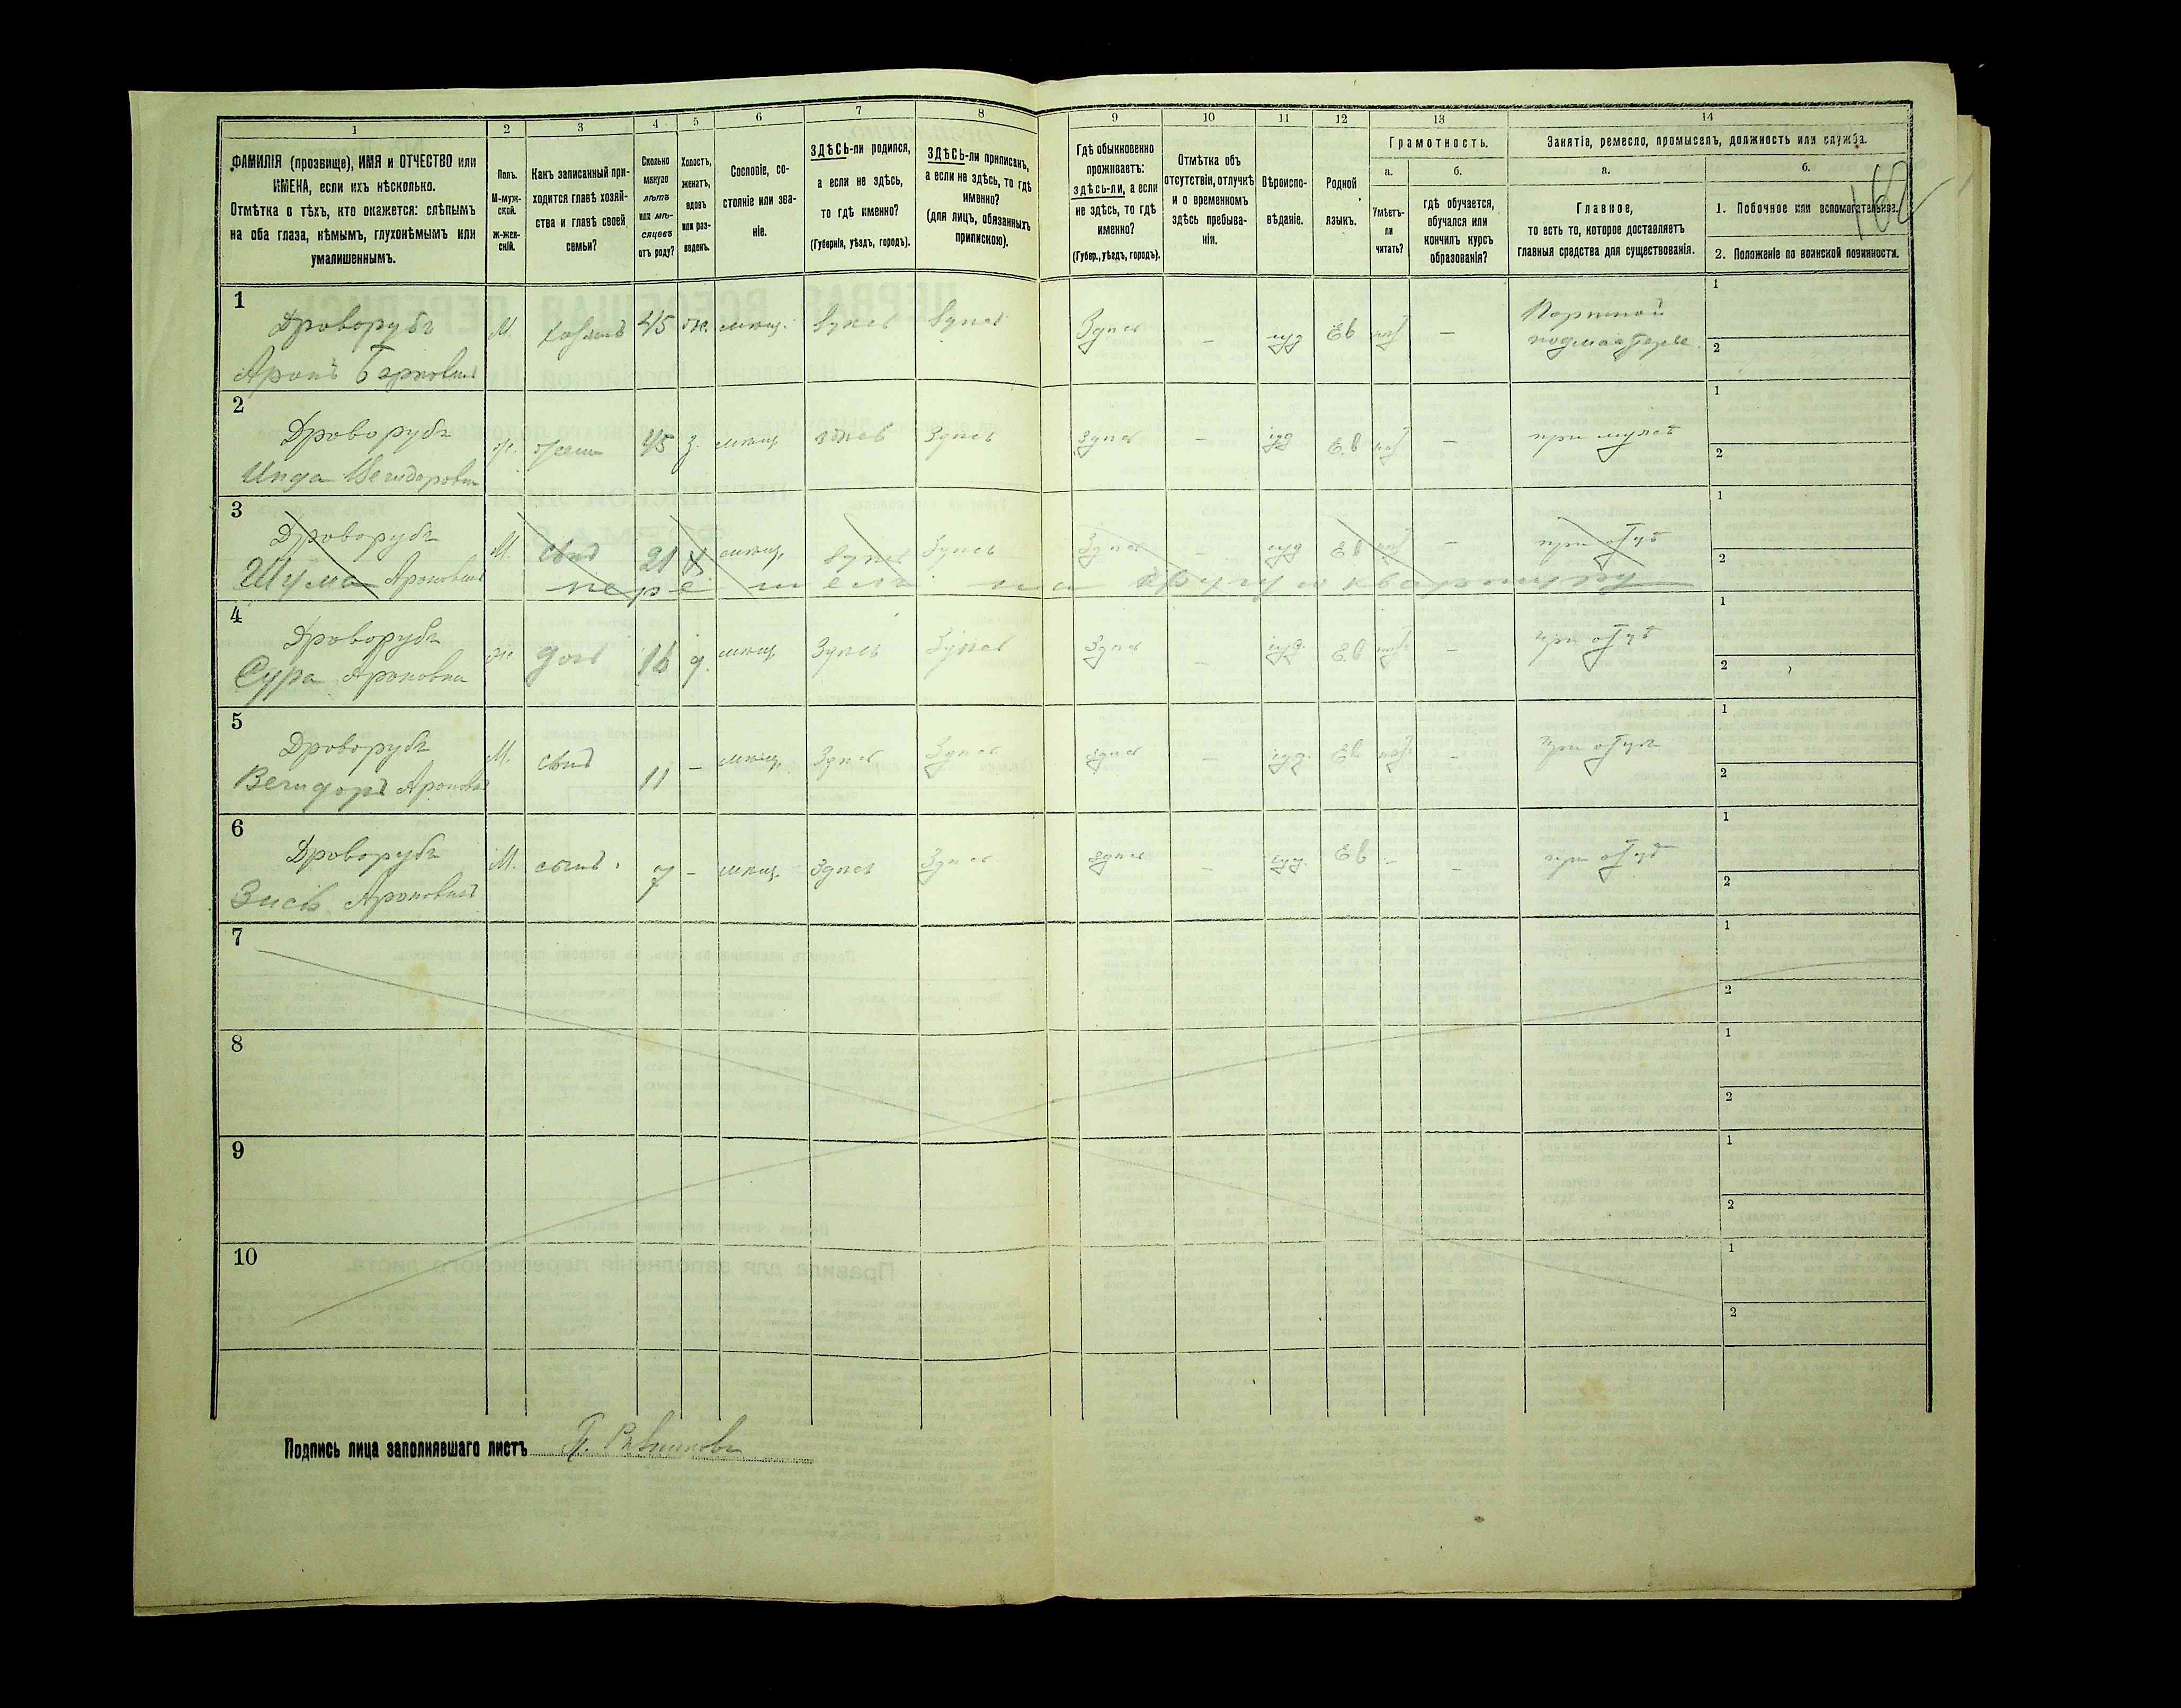 1 2 3 4 5 6 7 8 9 10 11 12 13 14
ФАМИЛІЯ (прозвище), ИМЯ и ОТЧЕСТВО или
ИМЕНА, если ихъ нѣсколько.
Отмѣтка о тѣхъ, кто окажется: слѣпымъ
на оба глаза, нѣмымъ, глухонѣмымъ или
умалишеннымъ.
Полъ.
М-муж-
ской.
ж-жен-
скій.
Какъ записанный при-
ходится главѣ хозяй-
ства и главѣ своей
семьи?
Сколько
минуло
лѣтъ
или мѣ-
сяцевъ
отъ роду?
Холостъ,
женатъ,
вдовъ
или раз-
веденъ.
Сословіе, со-
стояніе или зва-
ніе.
ЗДѢСЬ-ли родился,
а если не здѣсь,
то гдѣ именно?
(Губернія, уѣздъ, городъ).
ЗДѢСЬ-ли приписанъ,
а если не здѣсь, то гдѣ
именно?
(для лицъ, обязанныхъ
припискою).
Гдѣ обыкновенно
проживаетъ:
здѣсь-ли, а если
не здѣсь, то гдѣ
именно?
(Губер., уѣздъ, городъ).
Отмѣтка объ
отсутствіи, отлучкѣ
и о временномъ
здѣсь пребыва-
ніи.
Вѣроиспо-
вѣданіе.
Родной
языкъ.
Грамотность.
а.
Умѣетъ-
ли
читать?
б.
гдѣ обучается,
обучался или
кончилъ курсъ
образованія?
Занятіе, ремесло, промыселъ, должность или служба.
а.
Главное,
то есть то, которое доставляетъ
главныя средства для существованія.
б.
1. Побочное или вспомогательное.
2. Положеніе по воинской повинности.
162
1
Дроворубъ
Аронъ Берковичъ
М. хозяинъ 45 ж. мѣщ. здѣсь здѣсь Здѣсь – – Портной
подмастерье
1
2
2
Дроворубъ
ж. жена 45 з. мѣщ здѣсь здѣсь здѣсь – – при мужѣ
1
2
3
Дроворубъ
Шума Ароновичъ
М. сынъ 21 мѣщ. здѣсь здѣсь здѣсь – – при отцѣ
перешелъ на другую квартиру
1
2
4
Дроворубъ
Сура Ароновна
ж дочь 16 д. мѣщ здѣсь здѣсь здѣсь – – при отцѣ
1
2
5
Дроворубъ
Ароновичъ
М. сынъ 11 – мѣщ. здѣсь здѣсь здѣсь – – при отцѣ
1
2
6
Дроворубъ
Зись Ароновичъ
М. сынъ 7 – мѣщ. здѣсь здѣсь здѣсь – – – при отцѣ
1
2
7
1
2
8
1
2
9
1
2
10
1
2
Подпись лица заполнявшаго листъ